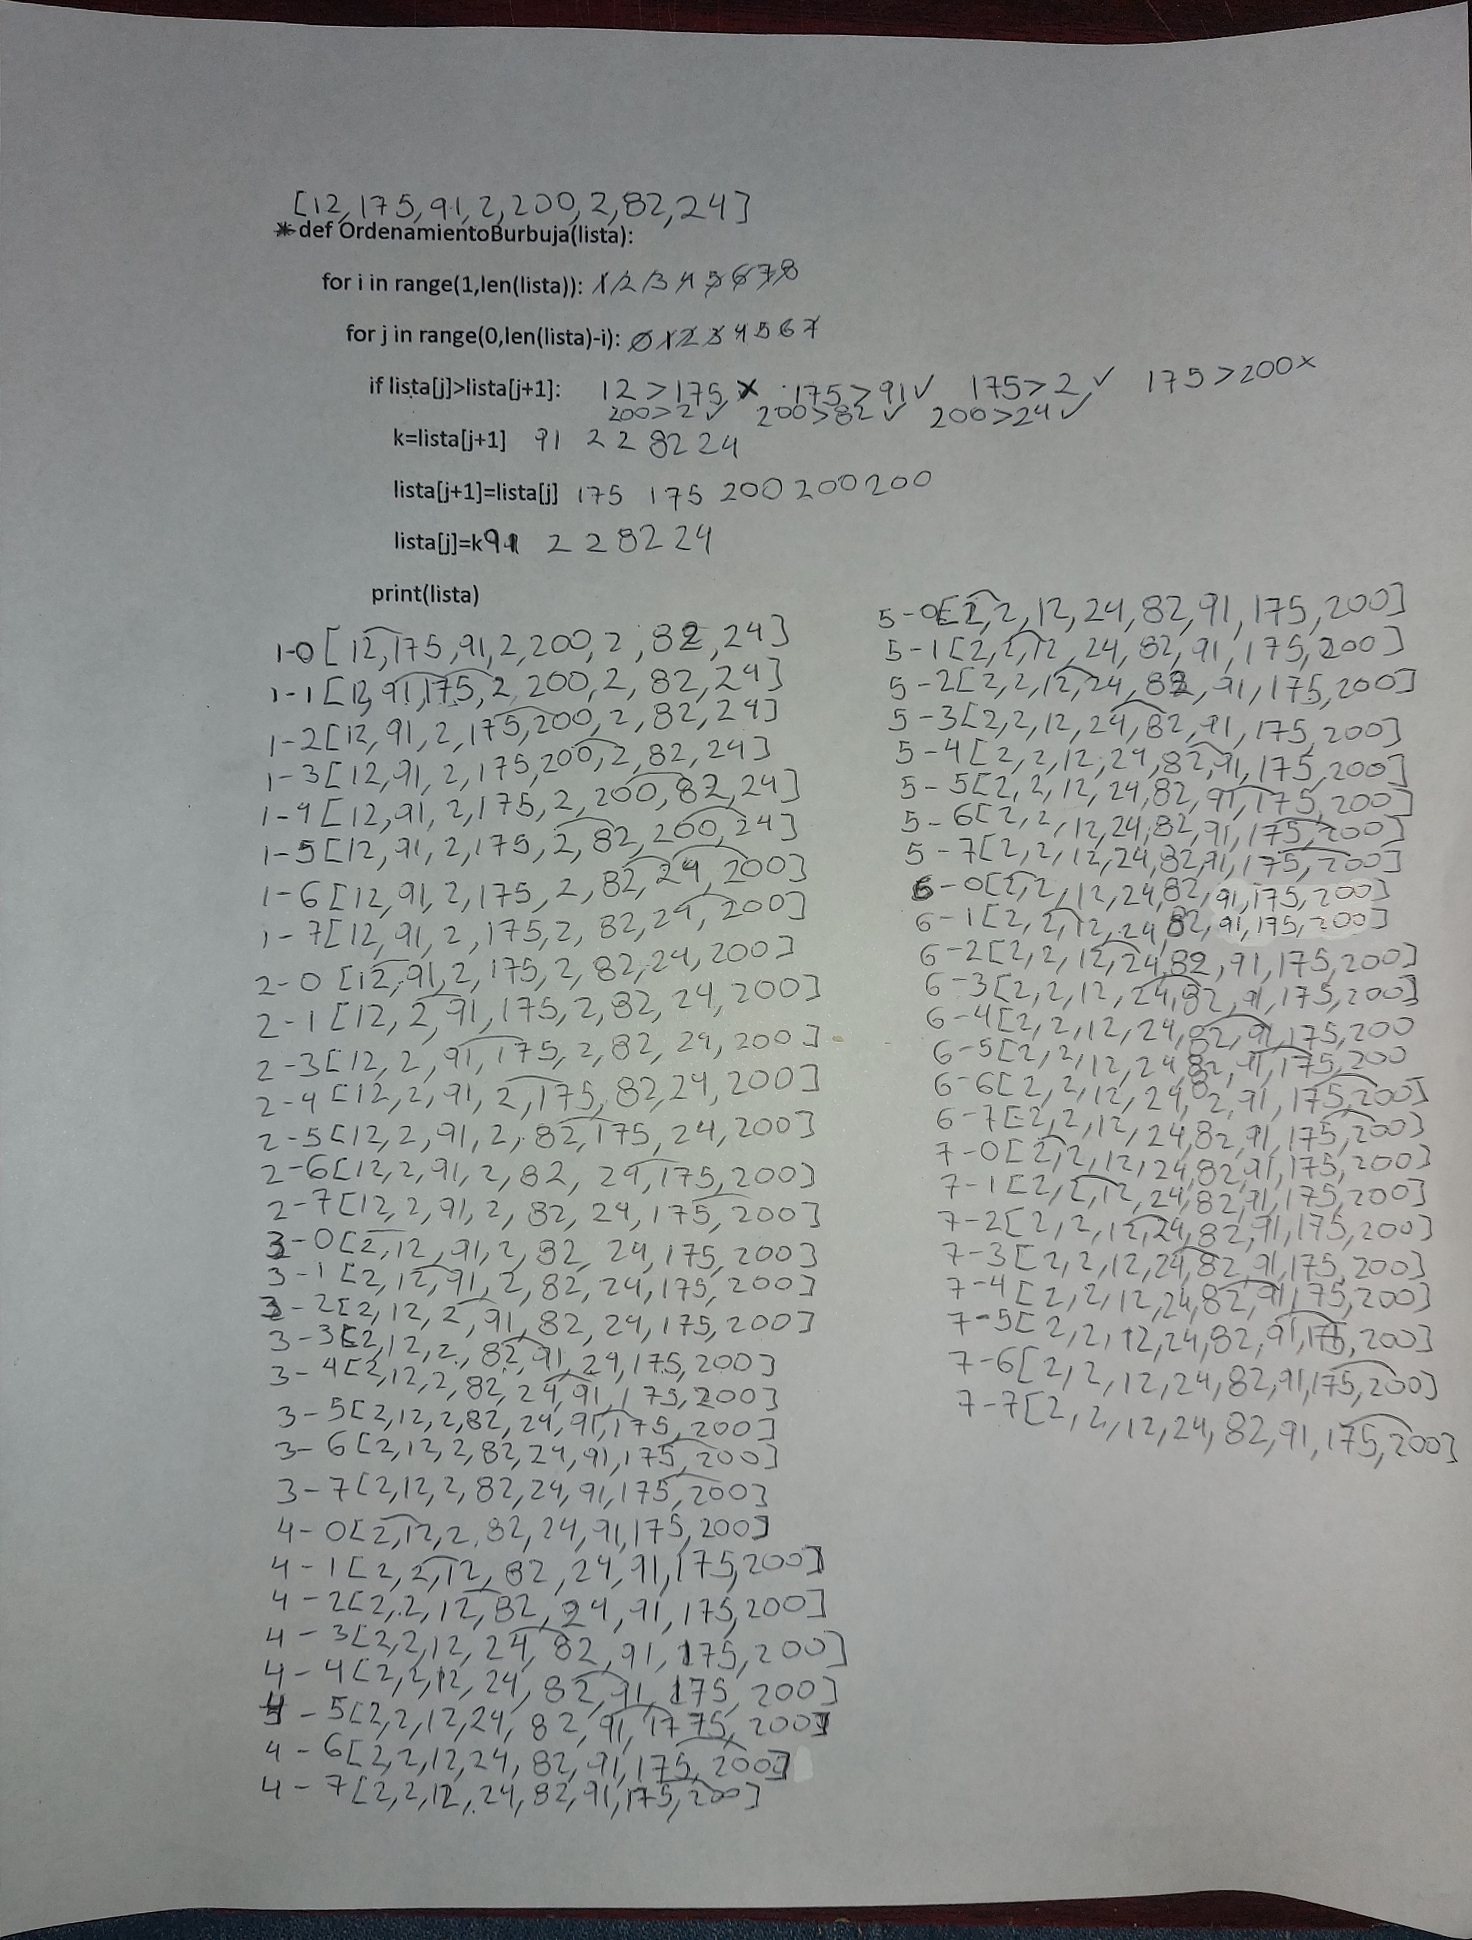 [12,175,91,2,200,2,82,24]
* def OrdenamientoBurbuja(lista):
for i in range(1,len(lista)): 1 2 3 4 5 6 7 8
for j in range(0,len(lista)-i): 0 1 2 3 4 5 6 7
if lista[j]>lista[j+1]: 12>175 x 175>91✓ 175>2✓ 175>200x
200>2✓ 200>82✓ 200>24✓
k=lista[j+1] 91 2 2 82 24
lista[j+1]=lista[j] 175 175 200 200 200
lista[j]=k 91 2 2 82 24
print(lista)
1-0[12,175,91,2,200,2,82,24]
1-1[12,91,175,2,200,2,82,24]
1-2[12,91,2,175,200,2,82,24]
1-3[12,91,2,175,200,2,82,24]
1-4[12,91,2,175,2,200,82,24]
1-5[12,91,2,175,2,82,200,24]
1-6[12,91,2,175,2,82,24,200]
1-7[12,91,2,175,2,82,24,200]
2-0[12,91,2,175,2,82,24,200]
2-1[12,2,91,175,2,82,24,200]
2-3[12,2,91,175,2,82,24,200]
2-4[12,2,91,2,175,82,24,200]
2-5[12,2,91,2,82,175,24,200]
2-6[12,2,91,2,82,24,175,200]
2-7[12,2,91,2,82,24,175,200]
3-0[2,12,91,2,82,24,175,200]
3-1[2,12,91,2,82,24,175,200]
3-2[2,12,2,91,82,24,175,200]
3-3[2,12,2,82,91,24,175,200]
3-4[2,12,2,82,24,91,175,200]
3-5[2,12,2,82,24,91,175,200]
3-6[2,12,2,82,24,91,175,200]
3-7[2,12,2,82,24,91,175,200]
4-0[2,12,2,82,24,91,175,200]
4-1[2,2,12,82,24,91,175,200]
4-2[2,2,12,82,24,91,175,200]
4-3[2,2,12,24,82,91,175,200]
4-4[2,2,12,24,82,91,175,200]
4-5[2,2,12,24,82,91,1775,200]
4-6[2,2,12,24,82,91,175,200]
4-7[2,2,12,24,82,91,175,200]
5-0[2,2,12,24,82,91,175,200]
5-1[2,2,12,24,82,91,175,200]
5-2[2,2,12,24,82,91,175,200]
5-3[2,2,12,24,82,91,175,200]
5-4[2,2,12,24,82,91,175,200]
5-5[2,2,12,24,82,91,175,200]
5-6[2,2,12,24,82,91,175,200]
5-7[2,2,12,24,82,91,175,200]
6-0[2,2,12,24,82,91,175,200]
6-1[2,2,12,24,82,91,175,200]
6-2[2,2,12,24,82,91,175,200]
6-3[2,2,12,24,82,91,175,200]
6-4[2,2,12,24,82,91,175,200
6-5[2,2,12,24,82,91,175,200
6-6[2,2,12,24,82,91,175,200]
6-7[2,2,12,24,82,91,175,200]
7-0[2,2,12,24,82,91,175,200]
7-1[2,2,12,24,82,91,175,200]
7-2[2,2,12,24,82,91,175,200]
7-3[2,2,12,24,82,91,175,200]
7-4[2,2,12,24,82,91,175,200]
7-5[2,2,12,24,82,91,175,200]
7-6[2,2,12,24,82,91,175,200]
7-7[2,2,12,24,82,91,175,200]